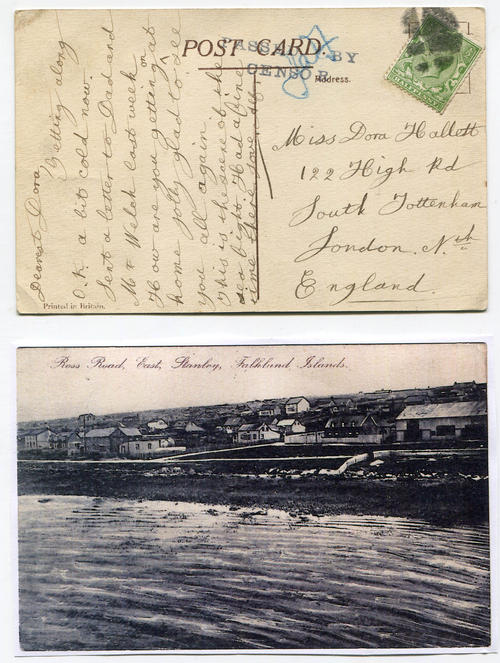 POST CARD.
PASSED BY
CENSOR
Address.
Dearest Dora,
Getting along
O.K. a bit cold now.
Sent a letter to Dad and
Mr Welch last week
How are you getting on at
home jolly glad to see
you all again.
This is the scene of the
Had a fine
time there love
Miss Dora Hallett
122 High Rd
South Tottenham
London. Nth
England.
Printed in Britain.
Ross Road, East, Stanley, Falkland Islands.